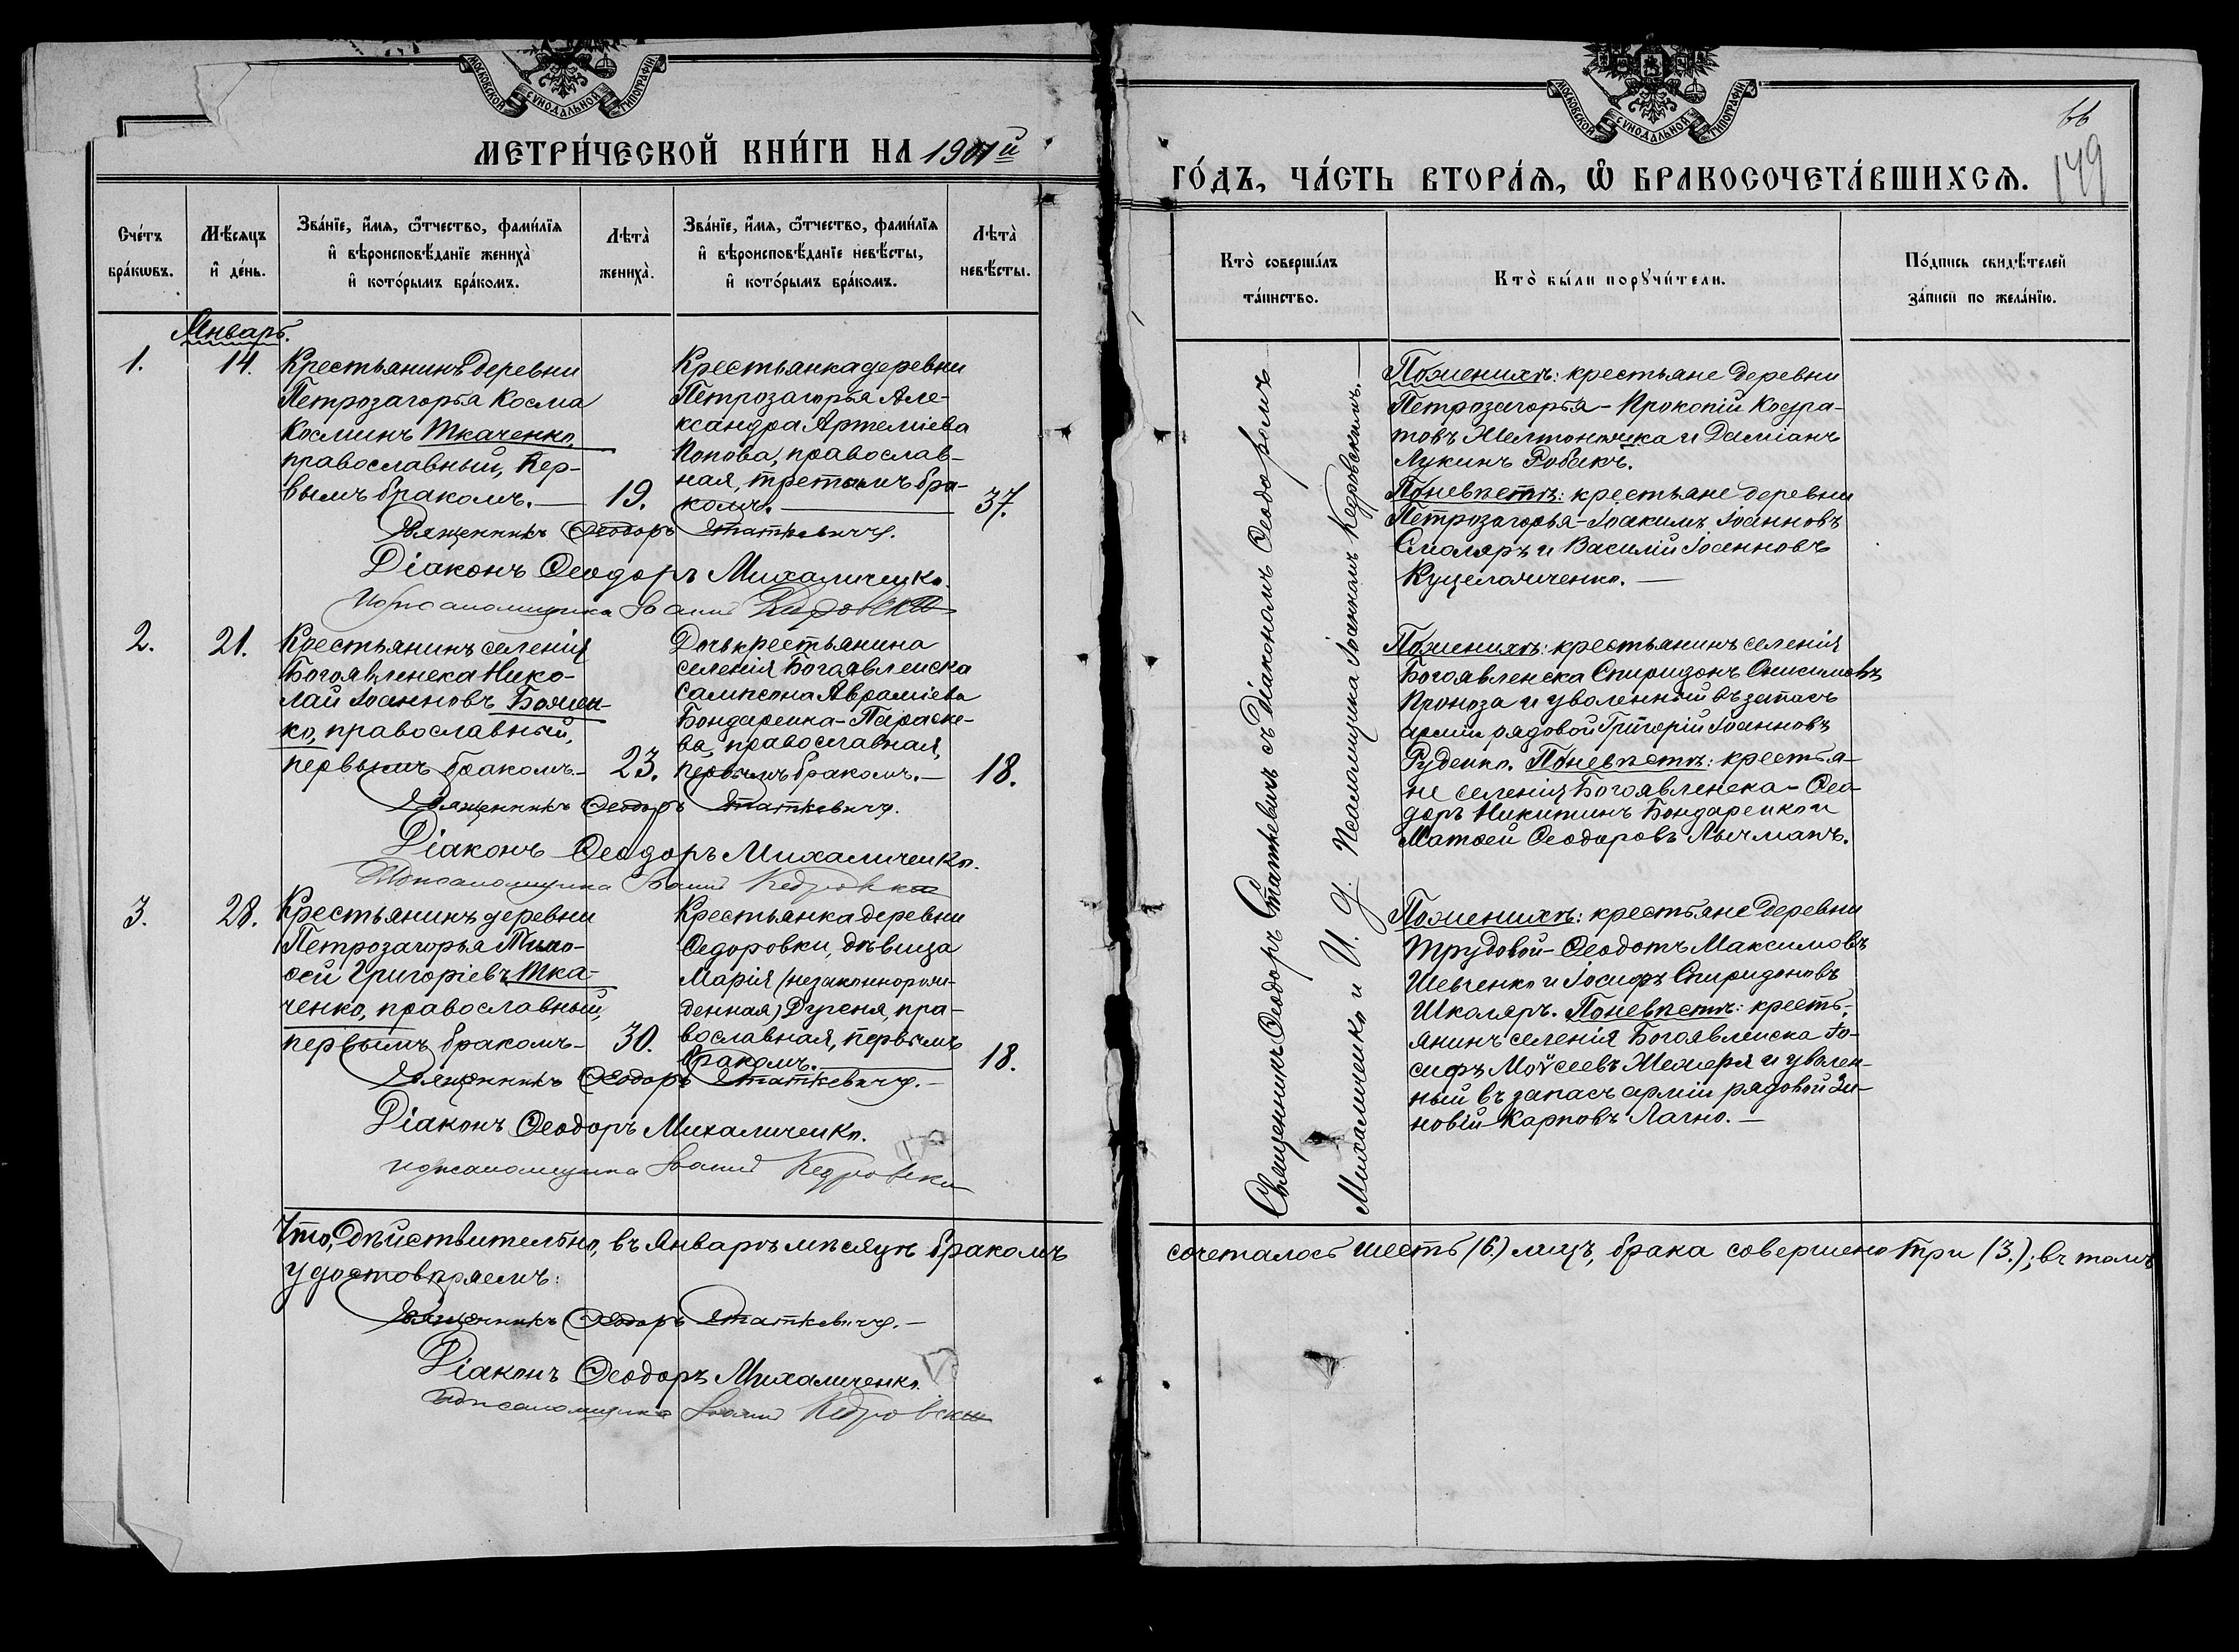 МОСКОВСКОЙ СѴНОДАЛЬНОЙ ТИПОГРАФІИ
МЕТРИ́ЧЕСКОЙ КНИ́ГИ НА 1901й
Сче́тъ бра́кωвъ.
Мѣ́сяцъ и҆ де́нь.
Зва́нїе, и҆́мя, ѻ҆́тчество, фами́лїя
и҆ вѣроисповѣ́данїе жениха̀
и҆ кото́рымъ бра́комъ.
Лѣта̀ жениха̀.
Зва́нїе, и҆́мя, ѻ҆́тчество, фами́лїя
и҆ вѣроисповѣ́данїе невѣ́сты,
и҆ кото́рымъ бра́комъ.
Лѣта̀ невѣ́сты.
Январь.
1.
14.
Крестьянинъ деревни
Петрозагорья Косма
Косминъ Ткаченко,
православный, пер-
вымъ бракомъ.—
19.
Крестьянка деревни
Петрозагорья Але-
ксандра Артеміева
Попова, православ-
ная, третьимъ бра-
комъ.—
37.
Священникъ Ѳеодоръ Статкевичъ.
Діаконъ Ѳеодоръ Михаличенко.
И д псаломщика Іоаннъ Кедровскій
2.
21.
Крестьянинъ селенія
Богоявленска Нико-
лай Іоанновъ Божен-
ко, православный,
первымъ бракомъ.—
23.
Дочь крестьянина
селенія Богоявленска
Сампсона Авраміева
Бондаренка-Параске-
ва, православная,
первымъ бракомъ.—
18.
Священникъ Ѳеодоръ Статкевичъ.
Діаконъ Ѳеодоръ Михаличенко.
И д псаломщика Іоаннъ Кедровскій
3.
28.
Крестьянинъ деревни
Петрозагорья Тимо-
ѳей Григоріевъ Тка-
ченко, православный,
первымъ бракомъ.—
30.
Крестьянка деревни
Ѳедоровки, дѣвица
Марія (незаконнорож-
денная) Дуреня, пра-
вославная, первымъ
бракомъ.—
18.
Священникъ Ѳеодоръ Статкевичъ.—
Діаконъ Ѳеодоръ Михаличенко.
И д псаломщика Іоаннъ Кедровскій
Что, дѣйствительно, въ Январѣ мѣсяцѣ бракомъ
удостовѣряемъ:
Священникъ Ѳеодоръ Статкевичъ.—
Діаконъ Ѳеодоръ Михаличенко.
И д псаломщика Іоаннъ Кедровскій
МОСКОВСКОЙ СѴНОДАЛЬНОЙ ТИПОГРАФІИ
66
149
ГО́ДЪ, ЧА́СТЬ ВТОРА́Я, Ѡ҆ БРАКОСОЧЕТА́ВШИХСЯ.
Кто̀ соверша́лъ
та́инство.
Кто̀ бы́ли порꙋчи́тели.
По́дпись свидѣ́телей
за́писи по жела́нїю.
Священникъ Ѳеодоръ Статкевичъ съ Діакономъ Ѳеодоромъ
Михаличенко и И. д. Псаломщика Іоанномъ Кедровскимъ.—
По женихѣ: крестьяне деревни
Петрозагорья-Прокопій Кодра-
товъ Желтоножка и Даміанъ
Лукинъ Робакъ.
По невѣстѣ: крестьяне деревни
Петрозагорья-Іоакимъ Іоанновъ
Смоляръ и Василій Іоанновъ
Куцеломченко.—
По женихѣ: крестьянинъ селенія
Богоявленска Спиридонъ Онисимовъ
Проноза и уволенный въ запасъ
арміи рядовой Григорій Іоанновъ
Руденко. По невѣстѣ: крестья-
не селенія Богоявленска-Ѳео-
доръ Никитинъ Бондаренко и
Матѳей Ѳеодоровъ Лычманъ.
По женихѣ: крестьяне деревни
Трудовой-Ѳеодотъ Максимовъ
Шевченко и Іосифъ Спиридоновъ
Школяръ. По невѣстѣ: кресть-
янинъ селенія Богоявленска Іо-
сифъ Моѵсеевъ Жемеря и уволен-
ный въ запасъ арміи рядовой Зи-
новій Карповъ Лагно.—
сочеталось шесть (6.) лицъ, брака совершено три (3.); въ томъ